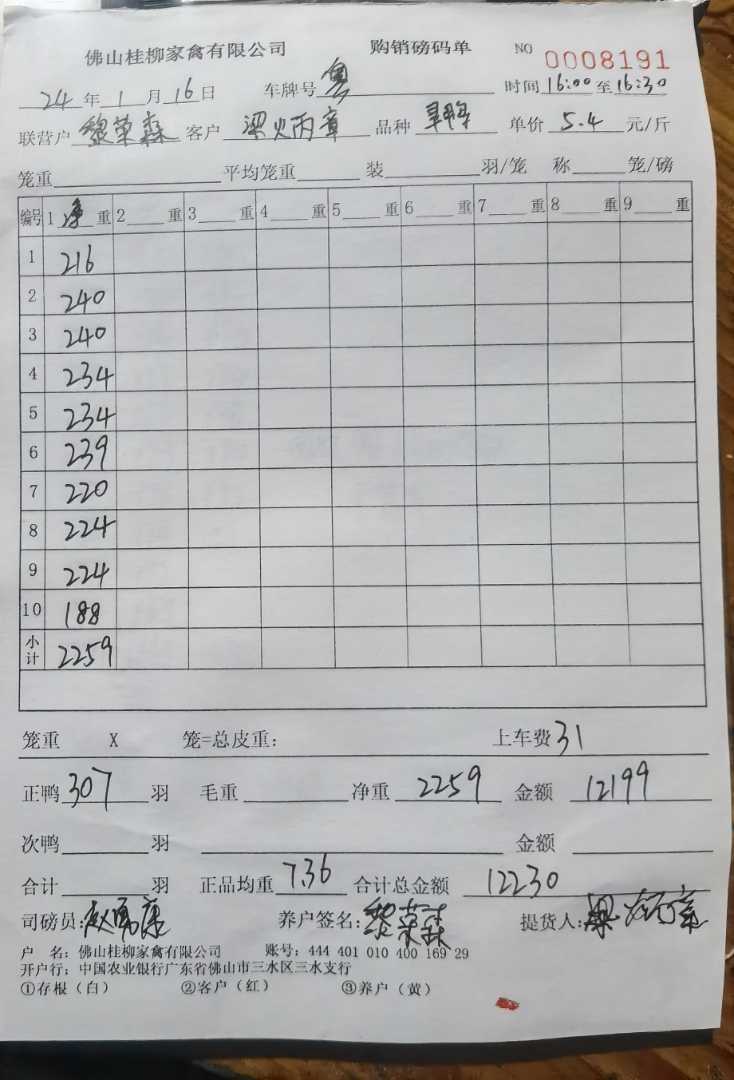 佛山桂柳家禽有限公司 购销磅码单 NO 0008191
24 年 1 月 16 日 车牌号 粤 时间 16:00 至 16:30
联营户 黎荣森 客户 梁火丙章 品种 单价 5.4 元/斤
笼重 平均笼重 装 羽/笼 称 笼/磅
编号 1 净 重 2 重 3 重 4 重 5 重 6 重 7 重 8 重 9 重
1 216
2 240
3 240
4 234
5 234
6 239
7 220
8 224
9 224
10 188
小计 2259
笼重 X 笼=总皮重： 上车费 31
正鸭 307 羽 毛重 净重 2259 金额 12199
次鸭 羽 金额
合计 羽 正品均重 7.36 合计总金额 12230
司磅员： 养户签名：黎荣森 提货人：梁火丙章
户 名：佛山桂柳家禽有限公司 账号：444 401 010 400 169 29
开户行：中国农业银行广东省佛山市三水区三水支行
①存根（白） ②客户（红） ③养户（黄）